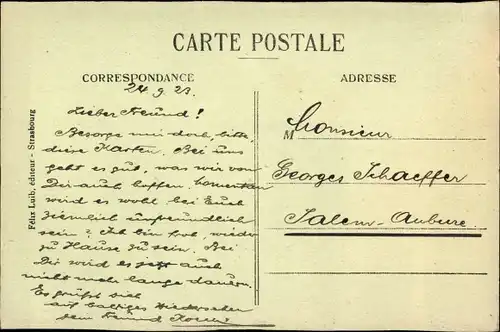 CARTE POSTALE
CORRESPONDANCE
ADRESSE
24.9.23.
Lieber Freund!
Besorge mir doch, bitte,
diese Karten. Bei uns
geht es gut, was wir von
Dir auch hoffen, momentan
wird es wohl bei Euch
ziemlich unfreundlich
sein? Ich bin froh, wieder
zu Hause zu sein. Bei
Dir wird es jetzt auch
nicht mehr lange dauern.
Es grüßt Dich
auf baldiges Wiedersehen
dein Freund
Monsieur
Georges Schaeffer
Salem-Aubure.
Félix Luib, éditeur - Strasbourg